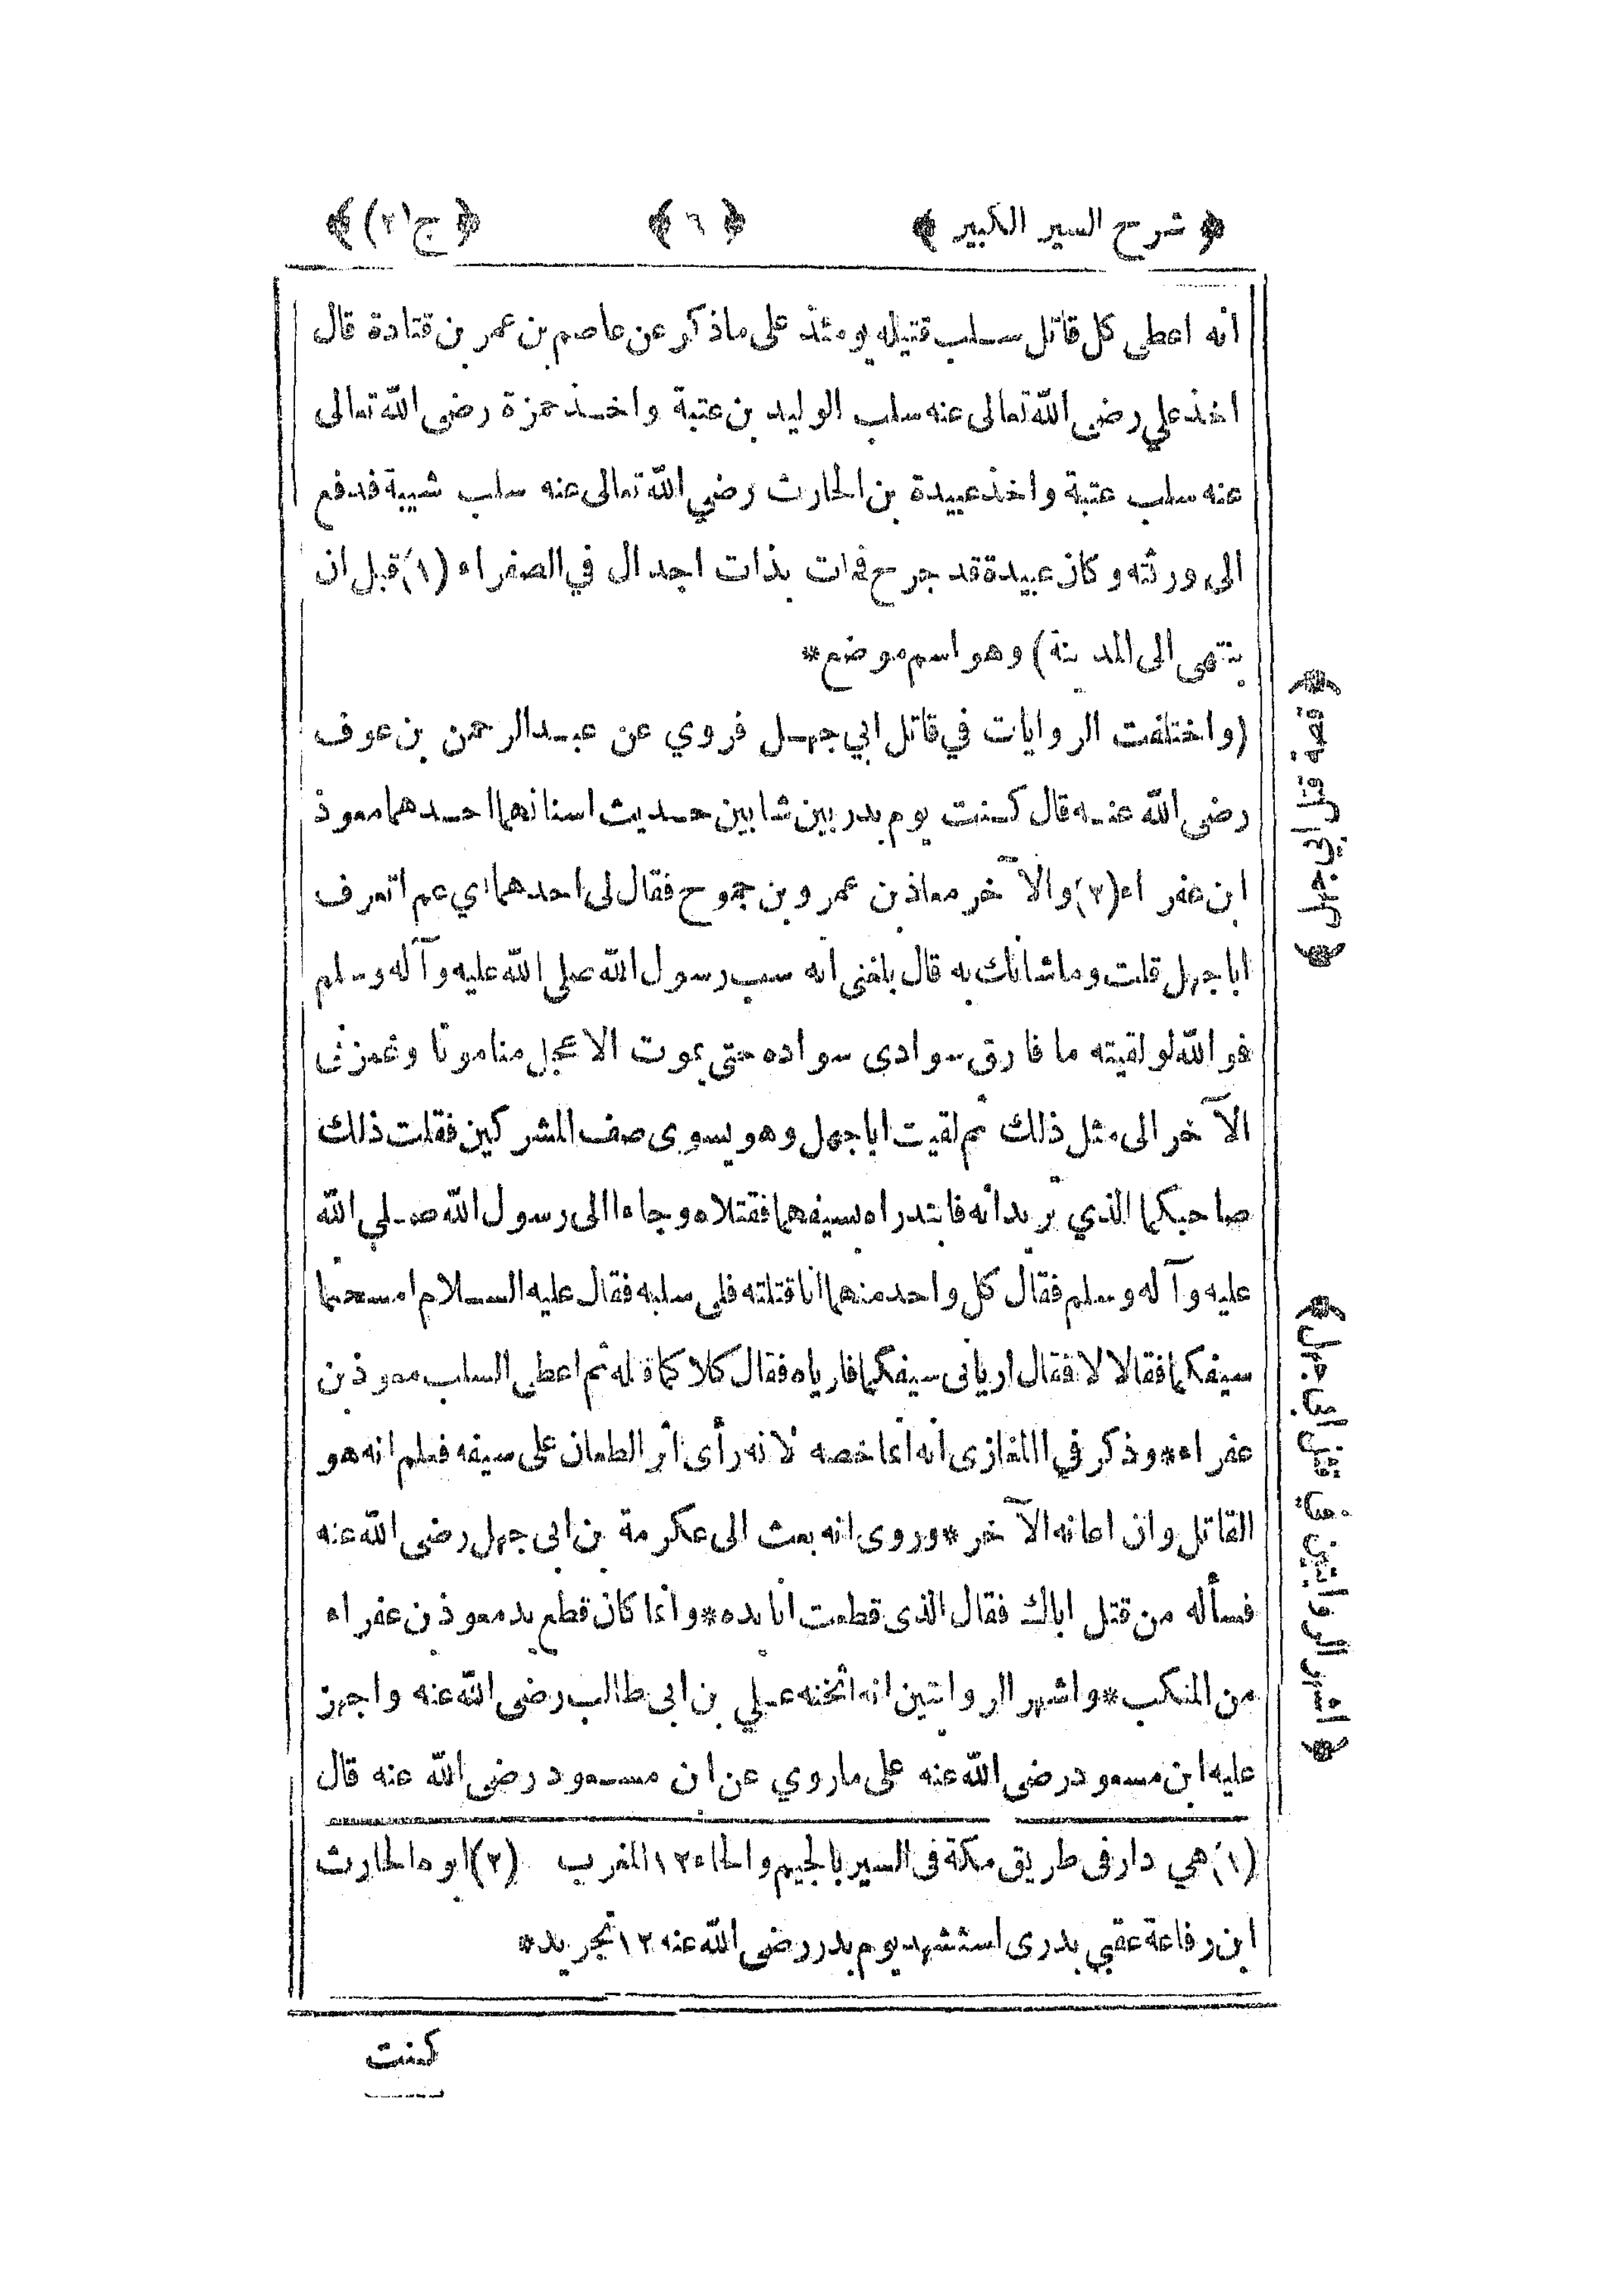 ﴿ شرح السير الكبير ﴾ ﴿ ٦ ﴾ ﴿ ج (٢) ﴾
انه اعطى كل قاتل سلب قتيله يومئذ على ماذكر عن عاصم بن عمر بن قتادة قال
اخذ علي رضى الله تعالى عنه سلب الوليد بن عتبة واخذ حمزة رضى الله تعالى
عنه سلب عتبة واخذ عبيدة بن الحارث رضي الله تعالى عنه سلب شيبة فدفع
الى ورثته وكان عبيدة قد جرح فمات بذات اجدال في الصفراء (١) قبل ان
ينتهى الى المدينة) وهو اسم موضع*
(واختلفت الروايات في قاتل ابي جهل فروي عن عبد الرحمن بن عوف
رضى الله عنه قال كنت يوم بدر بين شابين حديث اسنانهما احدهما معوذ
ابن عفراء (٢) والآخر معاذ بن عمرو بن جموح فقال لى احدهما اي عم اتعرف
ابا جهل قلت وما شانك به قال بلغنى انه سب رسول الله صلى الله عليه وآله وسلم
فو الله لو لقيته ما فارق سوادى سواده حتى يموت الاعجل منا موتا وغمزنى
الآخر الى مثل ذلك ثم لقيت ابا جهل وهو يسوى صف المشركين فقلت ذلك
صاحبكما الذي تريدانه فابتدراه بسيفهما فقتلاه وجاءا الى رسول الله صلي الله
عليه وآله وسلم فقال كل واحد منهما انا قتلته فلى سلبه فقال عليه السلام امسحتما
سيفكما فقالا لا فقال اريانى سيفكما فارياه فقال كلاكما قتله ثم اعطى السلب معوذ بن
عفراء* وذكر في المغازى انه انما خصه لانه رأى اثر الطعان على سيفه فعلم انه هو
القاتل وان اعانه الآخر* وروى انه بعث الى عكرمة بن ابى جهل رضى الله عنه
فسأله من قتل اباك فقال الذى قطعت انا يده* وانما كان قطع يد معوذ بن عفراء
من المنكب* واشهر الروايتين انه اثخنه علي بن ابى طالب رضى الله عنه واجهز
عليه ابن مسعود رضى الله عنه على ماروي عن ابن مسعود رضى الله عنه قال
(١) هي دار فى طريق مكة فى السير بالجيم والحاء ١٢ المغرب (٢) ابوه الحارث
ابن رفاعة عقبي بدرى استشهد يوم بدر رضى الله عنه ١٢ تجريد*
كنت
﴿ قصة قتل ابي جهل ﴾
﴿ اشهر الروايتين في قتل ابي جهل ﴾